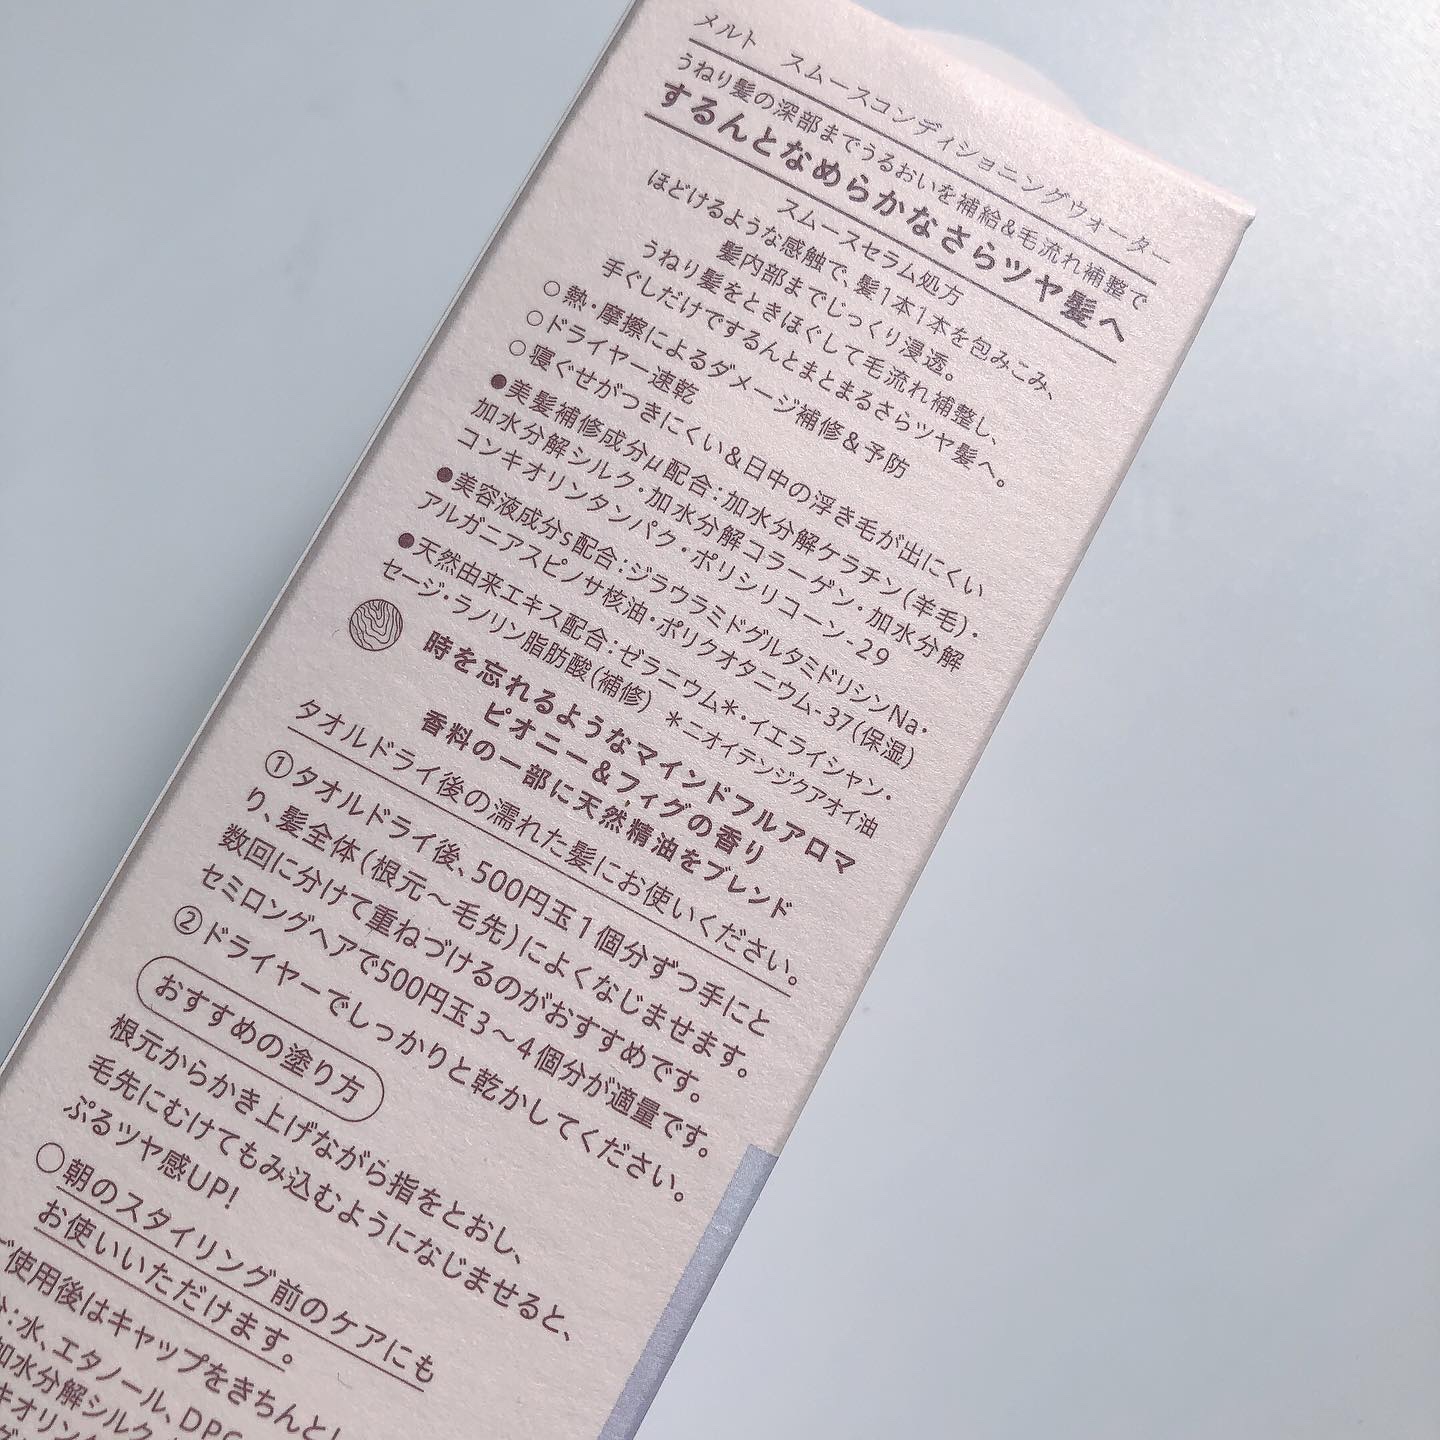 メルト　スムースコンディショニングウォーター
うねり髪の深部までうるおいを補給&毛流れ補整で
するんとなめらかなさらツヤ髪へ
スムースセラム処方
ほどけるような感触で、髪1本1本を包みこみ、
髪内部までじっくり浸透。
うねり髪をときほぐして毛流れ補整し、
手ぐしだけでするんとまとまるさらツヤ髪へ。
○熱・摩擦によるダメージ補修&予防
○ドライヤー速乾
○寝ぐせがつきにくい&日中の浮き毛が出にくい
●美髪補修成分μ配合:加水分解ケラチン(羊毛)・
加水分解シルク・加水分解コラーゲン・加水分解
コンキオリンタンパク・ポリシリコーン-29
●美容液成分s配合:ジラウラミドグルタミドリシンNa・
アルガニアスピノサ核油・ポリクオタニウム-37(保湿)
●天然由来エキス配合:ゼラニウム*・イエライシャン・
セージ・ラノリン脂肪酸(補修) *ニオイテンジクアオイ油
時を忘れるようなマインドフルアロマ
ピオニー&フィグの香り
香料の一部に天然精油をブレンド
タオルドライ後の濡れた髪にお使いください。
①タオルドライ後、500円玉1個分ずつ手にと
り、髪全体(根元～毛先)によくなじませます。
数回に分けて重ねづけるのがおすすめです。
セミロングヘアで500円玉3～4個分が適量です。
②ドライヤーでしっかりと乾かしてください。
おすすめの塗り方
根元からかき上げながら指をとおし、
毛先にむけてもみ込むようになじませると、
ぷるツヤ感UP!
○朝のスタイリング前のケアにも
お使いいただけます。
使用後はキャップをきちんと
:水、エタノール、DPG
加水分解シルク
キオリン